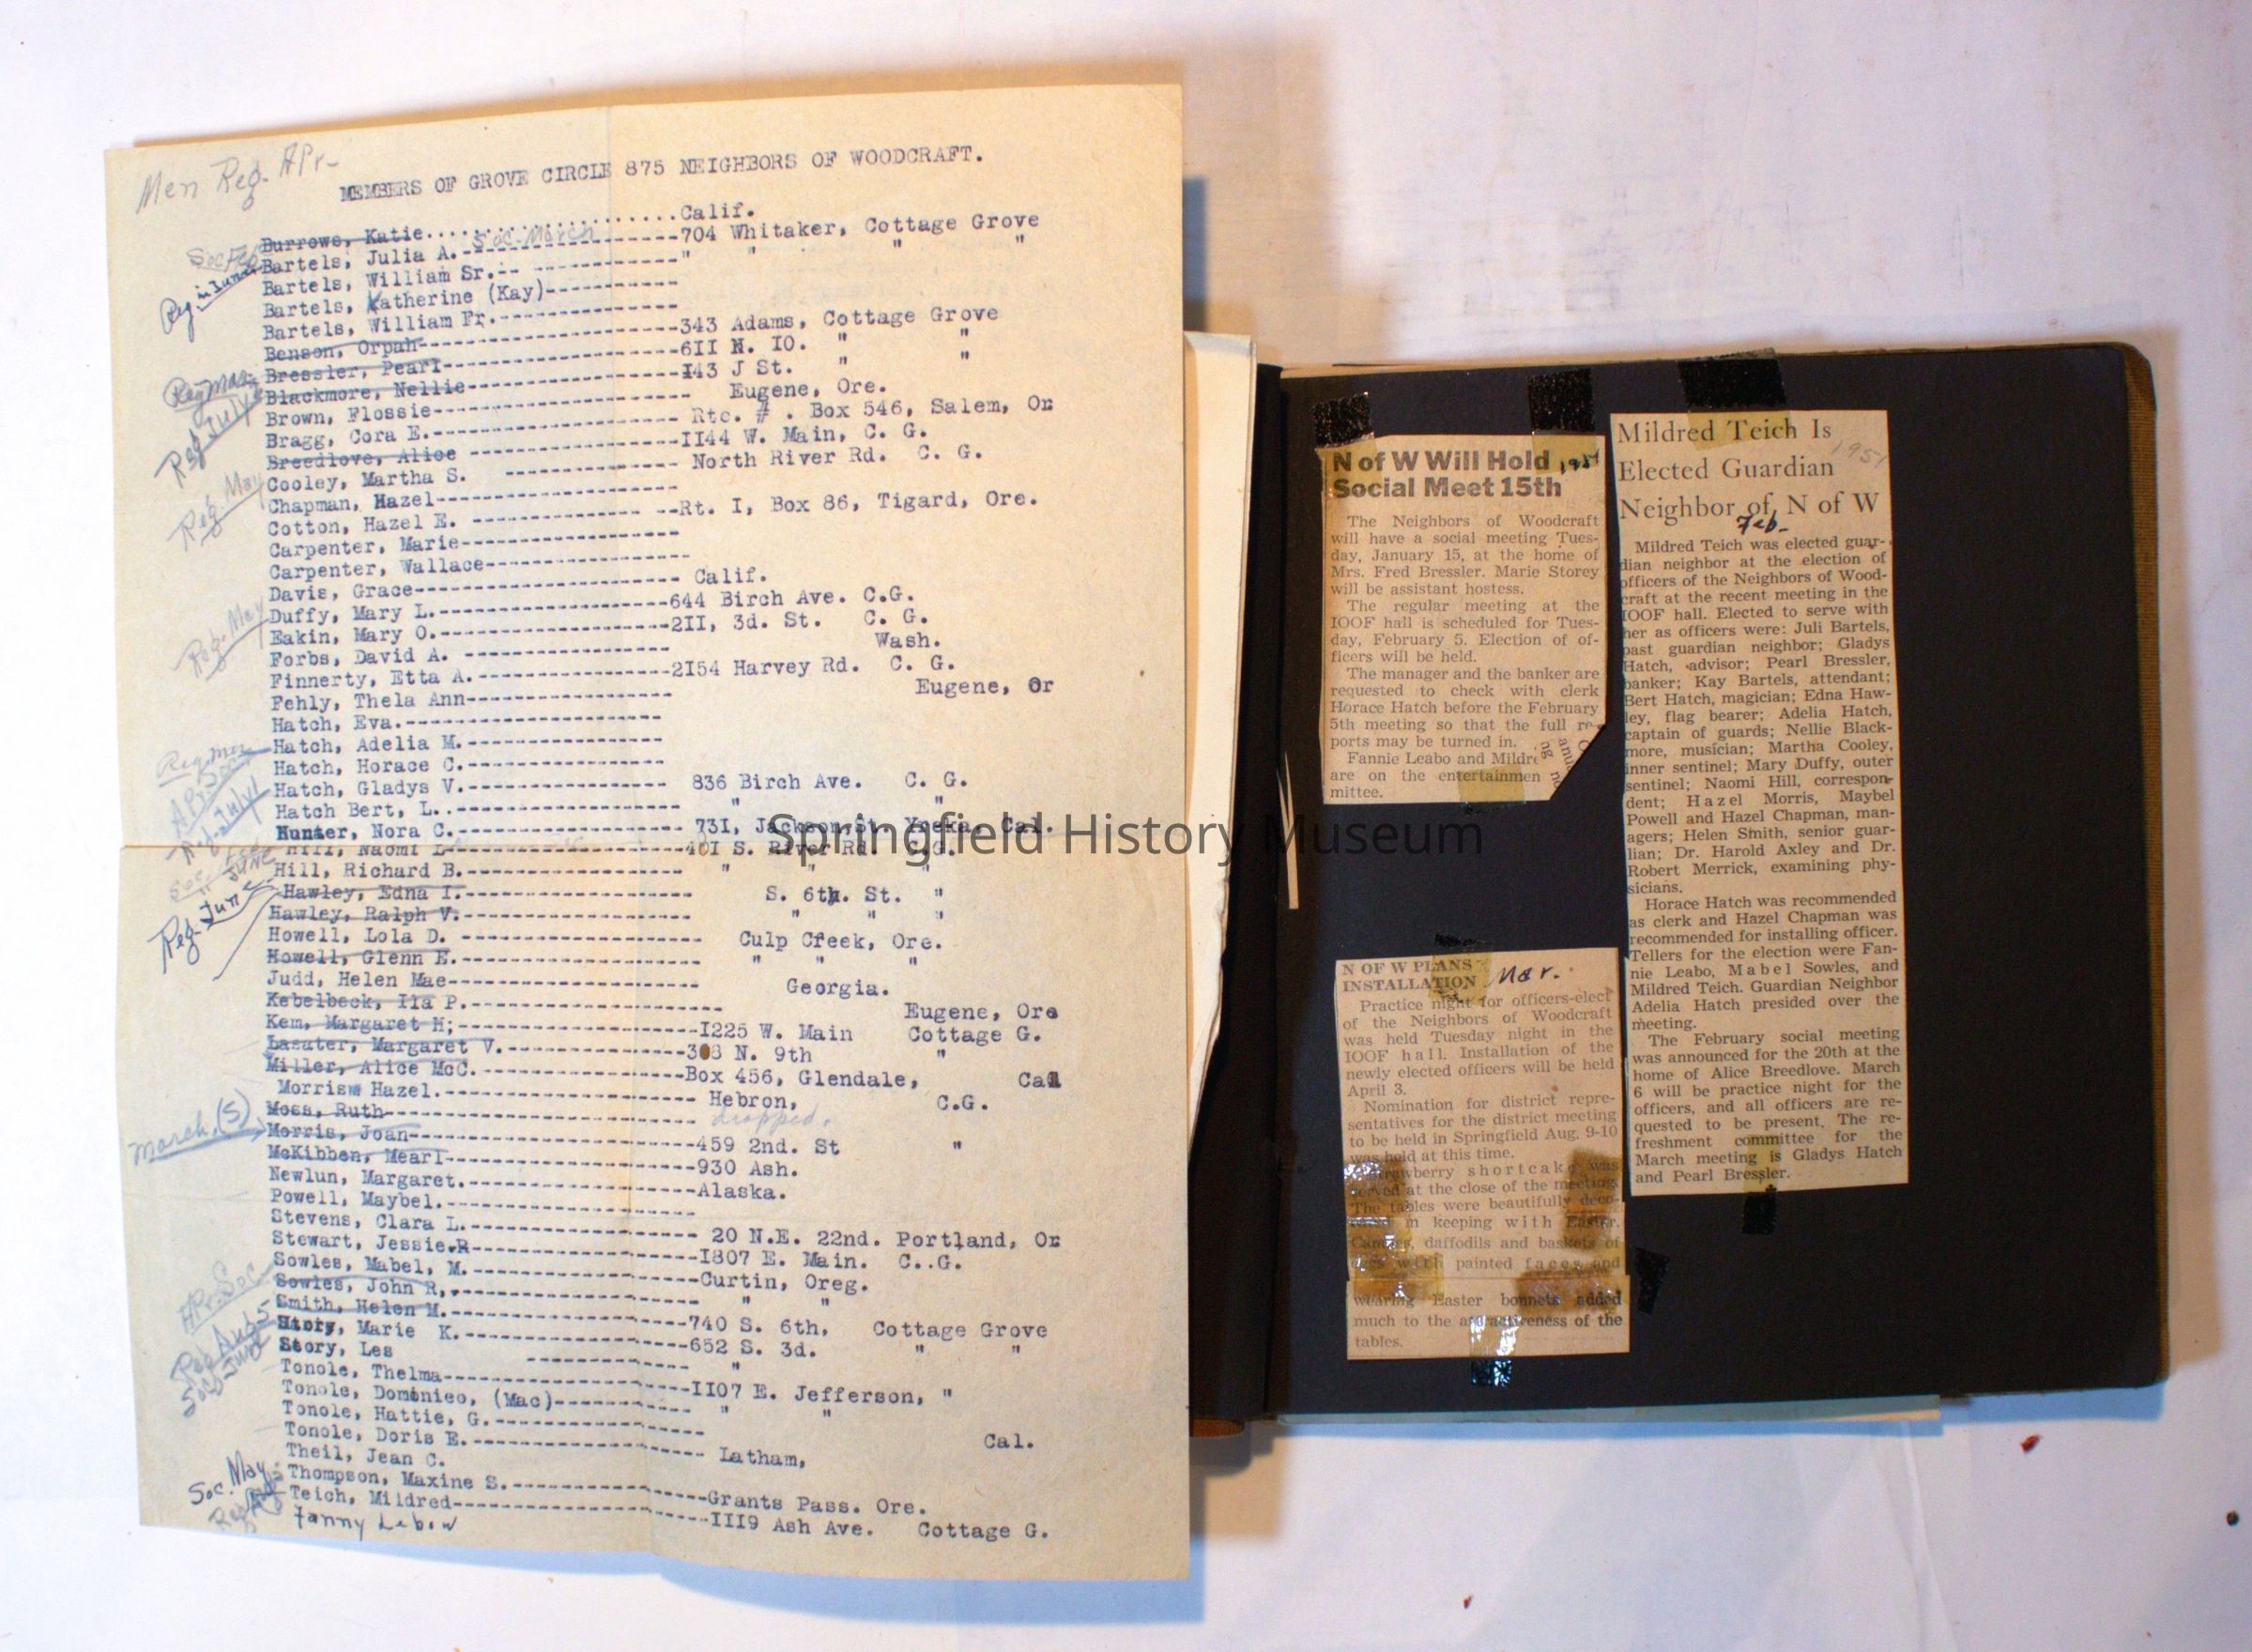 Men Reg. Apr-
MEMBERS OF GROVE CIRCLE 875 NEIGHBORS OF WOODCRAFT.
Burrows, Katie..........................Calif.
Soc. March
Bartels, Julia A.---------------------704 Whitaker, Cottage Grove
Bartels, William Sr.-- ------------ " " " "
Bartels, Katherine (Kay)-----------
Bartels, William Fr.---------------
Benson, Orpah----------------------343 Adams, Cottage Grove
Bressler, Pearl--------------------6II N. IO. " "
Blackmore, Nellie------------------I43 J St. " "
Brown, Flossie--------------------- Eugene, Ore.
Bragg, Cora E.--------------------- Rte. # . Box 546, Salem, Or
Breedlove, Alice ------------------II44 W. Main, C. G.
Cooley, Martha S. --------------- North River Rd. C. G.
Chapman, Hazel---------------------
Cotton, Hazel E. -------------- --Rt. I, Box 86, Tigard, Ore.
Carpenter, Marie-------------------
Carpenter, Wallace-----------------
Davis, Grace----------------------- Calif.
Duffy, Mary L.---------------------644 Birch Ave. C.G.
Eakin, Mary O.---------------------2II, 3d. St. C. G.
Forbs, David A. ------------------ Wash.
Finnerty, Etta A.------------------2I54 Harvey Rd. C. G.
Fehly, Thela Ann------------------- Eugene, Or
Hatch, Eva.------------------------
Hatch, Adelia M.-------------------
Hatch, Horace C.-------------------
Hatch, Gladys V.------------------- 836 Birch Ave. C. G.
Hatch Bert, L..-------------------- " "
Hunter, Nora C.-------------------- 73I, Jackson St. Yreka, Cal.
Hill, Naomi L----------------------40I S. River Rd. C.G.
Hill, Richard B.------------------- " " "
Hawley, Edna I.-------------------- S. 6th. St. "
Hawley, Ralph V.------------------- " " "
Howell, Lola D. ------------------- Culp Creek, Ore.
Howell, Glenn E.------------------- " " "
Judd, Helen Mae-------------------- Georgia.
Kebelbeck, Ila P.------------------ Eugene, Ore
Kem, Margaret H;-------------------I225 W. Main Cottage G.
Lasater, Margaret V.---------------308 N. 9th "
Miller, Alice McC.-----------------Box 456, Glendale, Cal
Morris Hazel.---------------------- Hebron, C.G.
Moss, Ruth------------------------- dropped.
Morris, Joan-----------------------459 2nd. St "
McKibben, Mearl--------------------930 Ash.
Newlun, Margaret.------------------Alaska.
Powell, Maybel.--------------------
Stevens, Clara L.------------------ 20 N.E. 22nd. Portland, Or
Stewart, Jessie.R------------------I807 E. Main. C..G.
Sowles, Mabel, M.------------------Curtin, Oreg.
Sowles, John R,.------------------- " "
Smith, Helen M.--------------------740 S. 6th, Cottage Grove
Story, Marie K.--------------------652 S. 3d. " "
Story, Les ------------- "
Tonole, Thelma---------------------II07 E. Jefferson, "
Tonole, Dominieo, (Mac)------------ " "
Tonole, Hattie, G.-----------------
Tonole, Doris E.------------------- Cal.
Theil, Jean C. Latham,
Thompson, Maxine S.----------------Grants Pass. Ore.
Teich, Mildred---------------------III9 Ash Ave. Cottage G.
Fanny Lebow
Reg in June
Reg Mar
Reg July
Reg May
Reg. May
Reg. July
Reg. June
March. (S)
Apr. Soc.
Reg Aug 5
Soc June
Soc. May
N of W Will Hold 1951
Social Meet 15th
The Neighbors of Woodcraft
will have a social meeting Tues-
day, January 15, at the home of
Mrs. Fred Bressler. Marie Storey
will be assistant hostess.
The regular meeting at the
IOOF hall is scheduled for Tues-
day, February 5. Election of of-
ficers will be held.
The manager and the banker are
requested to check with clerk
Horace Hatch before the February
5th meeting so that the full re-
ports may be turned in.
Fannie Leabo and Mildre
are on the entertainmen
mittee.
N OF W PLANS
INSTALLATION Mar.
Practice night for officers-elect
of the Neighbors of Woodcraft
was held Tuesday night in the
IOOF hall. Installation of the
newly elected officers will be held
April 3.
Nomination for district repre-
sentatives for the district meeting
to be held in Springfield Aug. 9-10
was held at this time.
Strawberry shortcake was
served at the close of the meeting.
The tables were beautifully deco-
in keeping with Easter.
Candles, daffodils and baskets of
with painted faces and
wearing Easter bonnets added
much to the attractiveness of the
tables.
Mildred Teich Is
1951
Elected Guardian
Neighbor of N of W
Feb-
Mildred Teich was elected guar-
dian neighbor at the election of
officers of the Neighbors of Wood-
craft at the recent meeting in the
IOOF hall. Elected to serve with
her as officers were: Juli Bartels,
past guardian neighbor; Gladys
Hatch, advisor; Pearl Bressler,
banker; Kay Bartels, attendant;
Bert Hatch, magician; Edna Haw-
ley, flag bearer; Adelia Hatch,
captain of guards; Nellie Black-
more, musician; Martha Cooley,
inner sentinel; Mary Duffy, outer
sentinel; Naomi Hill, correspon-
dent; Hazel Morris, Maybel
Powell and Hazel Chapman, man-
agers; Helen Smith, senior guar-
lian; Dr. Harold Axley and Dr.
Robert Merrick, examining phy-
sicians.
Horace Hatch was recommended
as clerk and Hazel Chapman was
recommended for installing officer.
Tellers for the election were Fan-
nie Leabo, Mabel Sowles, and
Mildred Teich. Guardian Neighbor
Adelia Hatch presided over the
meeting.
The February social meeting
was announced for the 20th at the
home of Alice Breedlove. March
6 will be practice night for the
officers, and all officers are re-
quested to be present. The re-
freshment committee for the
March meeting is Gladys Hatch
and Pearl Bressler.
Springfield History Museum